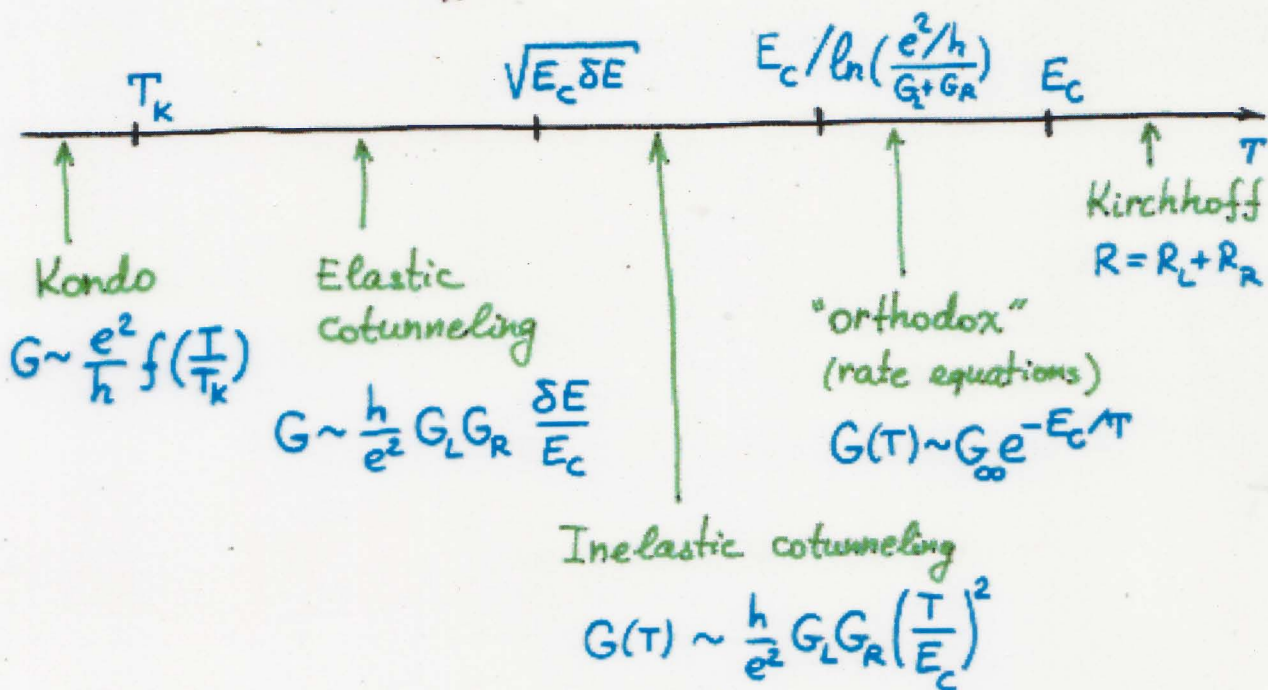 T_K
√(E_C δE)
E_C / ln( (e²/h) / (G_L + G_R) )
E_C
T
Kondo
G ~ e²/h f(T/T_K)
Elastic
cotunneling
G ~ h/e² G_L G_R δE/E_C
Inelastic cotunneling
G(T) ~ h/e² G_L G_R (T/E_C)²
"orthodox"
(rate equations)
G(T) ~ G_∞ e^(-E_C/T)
Kirchhoff
R = R_L + R_R